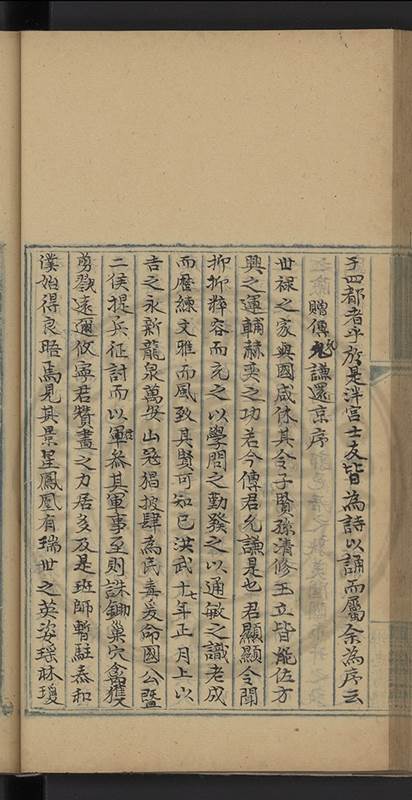 于四郡者乎於是泮宮士友皆為詩以誦而屬余為序云
贈傅允謙還京序
世禄之家與國咸休其令子賢孫清修玉立皆能佐方
興之運輔赫奕之功若今傅君允謙是也君顯顯令聞
抑抑粹容而充之以學問之勤發之以通敏之識老成
而歷練文雅而風致其賢可知已洪武十七年正月上以
吉之永新龍泉萬安山冦猖披肆為民毒爰命國公暨
二侯提兵征討而以軍叅其軍事至則誅鋤巢穴禽獲
剪戮遠邇攸寧君賛畫之力居多及是班師暫駐泰和
僕始得良晤焉見其景星鳳凰有瑞世之英姿瑶林瓊